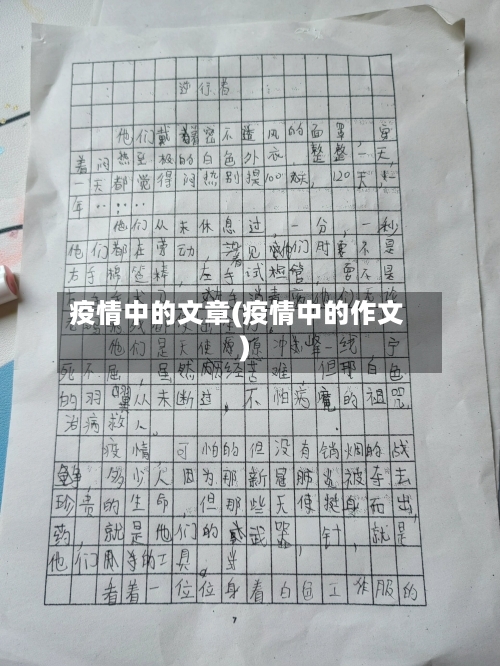 逆行者
他们戴着密不透风的面罩,穿
着闷热至极的白色外衣,整整一天,
一天都觉得闷热别提100天,120天,一
年……
他们从未休息过,一分,一秒
他们都在劳动,
右手棉签精,左手试
疫情中的文章(疫情中的作文
)
他们是天使
死不屈,虽然历经苦难,但那白色
的羽翼从未断过,不怕病魔的诅咒,
治病救人。
疫情,可怕的但没有销烟的战
多少人因为那新冠肺炎被夺去
珍贵的生命,但那些天使挺身而出,
药,就是他们的武器,针,就是
他们的工具。
看着一位位身着白色工作服的
7